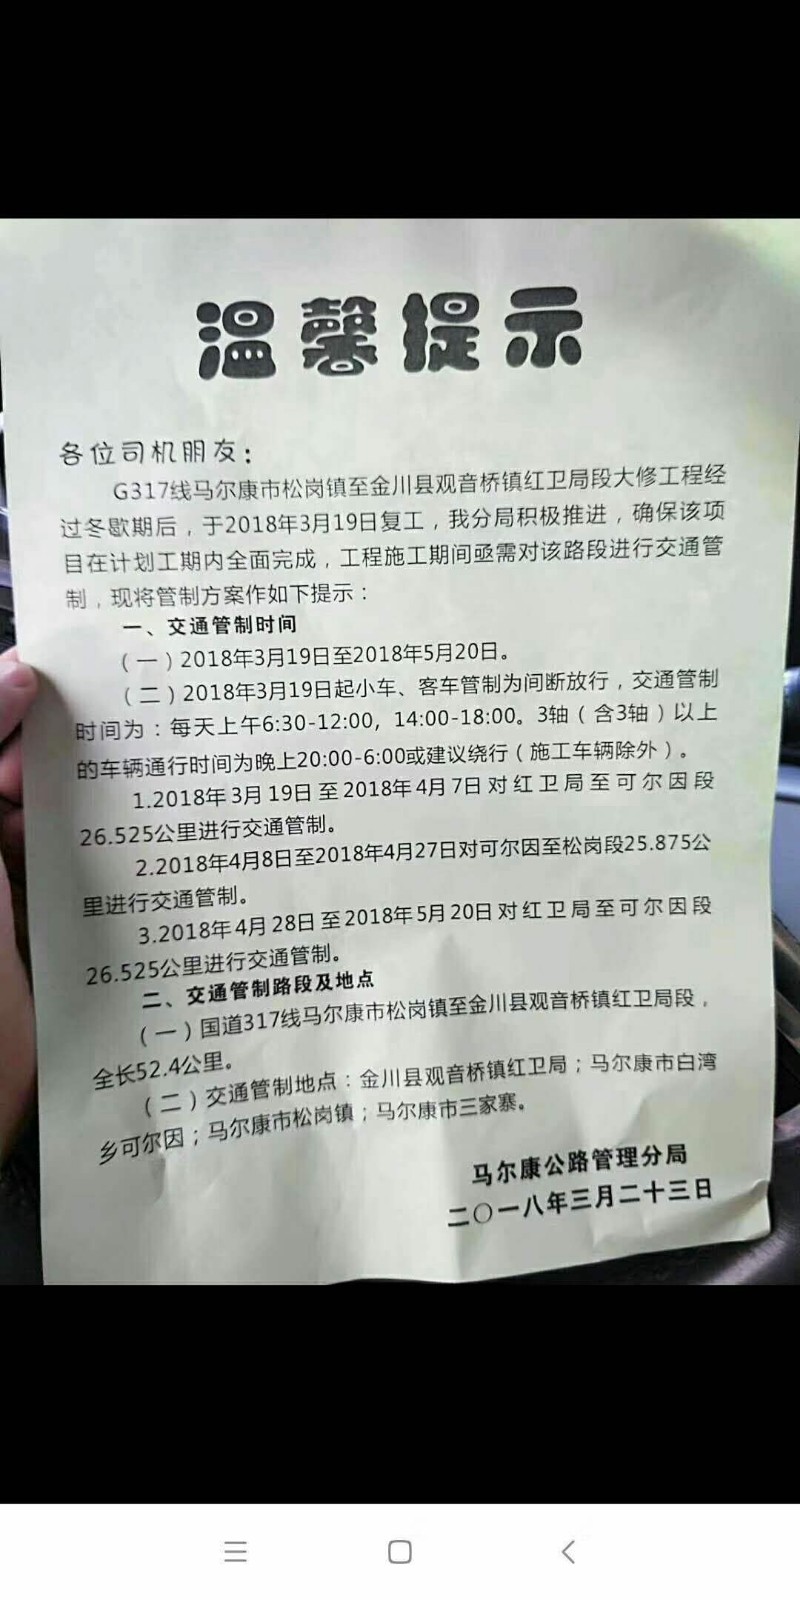 温馨提示
各位司机朋友：
G317线马尔康市松岗镇至金川县观音桥镇红卫局段大修工程经
过冬歇期后，于2018年3月19日复工，我分局积极推进，确保该项
目在计划工期内全面完成，工程施工期间亟需对该路段进行交通管
制，现将管制方案作如下提示：
一、交通管制时间
（一）2018年3月19日至2018年5月20日。
（二）2018年3月19日起小车、客车管制为间断放行，交通管制
时间为：每天上午6:30-12:00，14:00-18:00。3轴（含3轴）以上
的车辆通行时间为晚上20:00-6:00或建议绕行（施工车辆除外）。
1.2018年3月19日至2018年4月7日对红卫局至可尔因段
26.525公里进行交通管制。
2.2018年4月8日至2018年4月27日对可尔因至松岗段25.875公
里进行交通管制。
3.2018年4月28日至2018年5月20日对红卫局至可尔因段
26.525公里进行交通管制。
二、交通管制路段及地点
（一）国道317线马尔康市松岗镇至金川县观音桥镇红卫局段，
全长52.4公里。
（二）交通管制地点：金川县观音桥镇红卫局；马尔康市白湾
乡可尔因；马尔康市松岗镇；马尔康市三家寨。
马尔康公路管理分局
二〇一八年三月二十三日